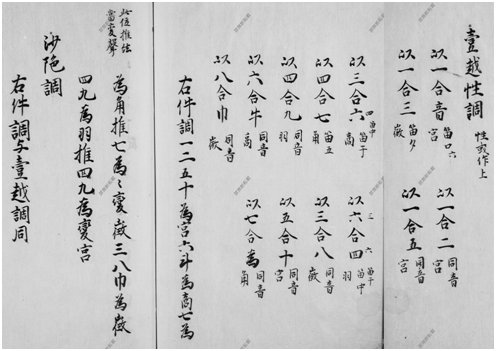 壹越性調 性或作上
以一合音 宮 笛口六
以一合二 同音 宮
以一合三 徵 笛夕
以一合五 同音 宮
以三合六 商 四 笛中 笛于
以六合四 羽 三 六 笛干 笛中
以四合七 角 笛五
以三合八 同音 徵
以四合九 同音 羽
以五合十 同音 宮
以六合斗 同音 商
以七合為 同音 角
以八合巾 同音 徵
右件調一二五十為宮六斗為商七為
為角推七為〻變徵三八巾為徵
四九為羽推四九為變宮
必位推絃
當變聲
沙陁調
右件調与壹越調同